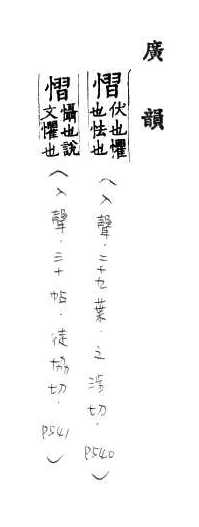 廣韻
慴伏也懼也怯也（入聲．二十九葉．之涉切．P540）
慴懾也說文懼也（入聲．三十帖．徒協切．P541）